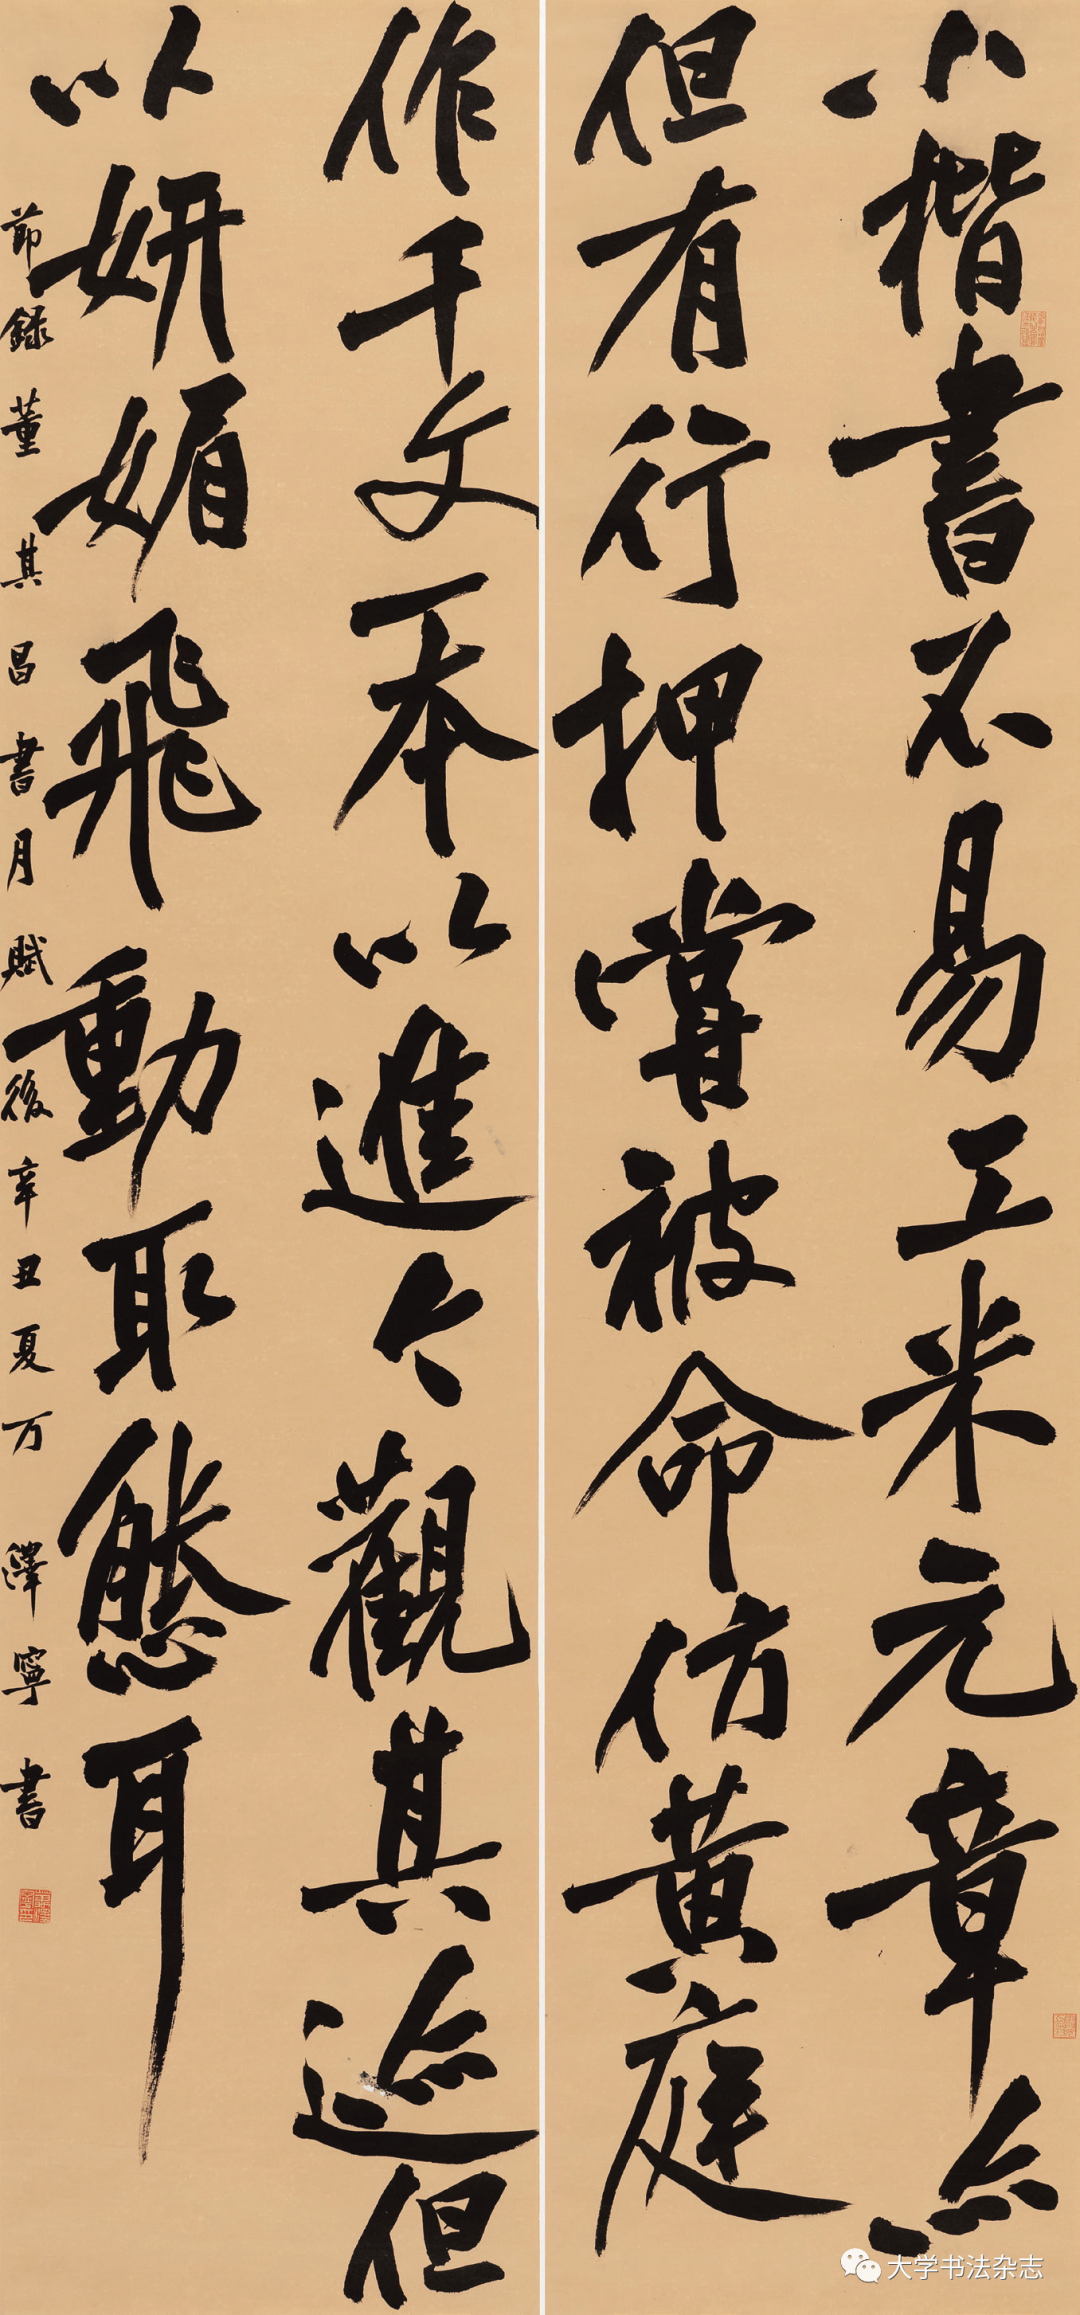 小楷書不易工米元章亦
但有行押嘗被命仿黄庭
作千文一本以進今觀其迹但
以妍媚飛動取態耳
節録董其昌書月賦後辛丑夏万澤寧書
大学书法杂志